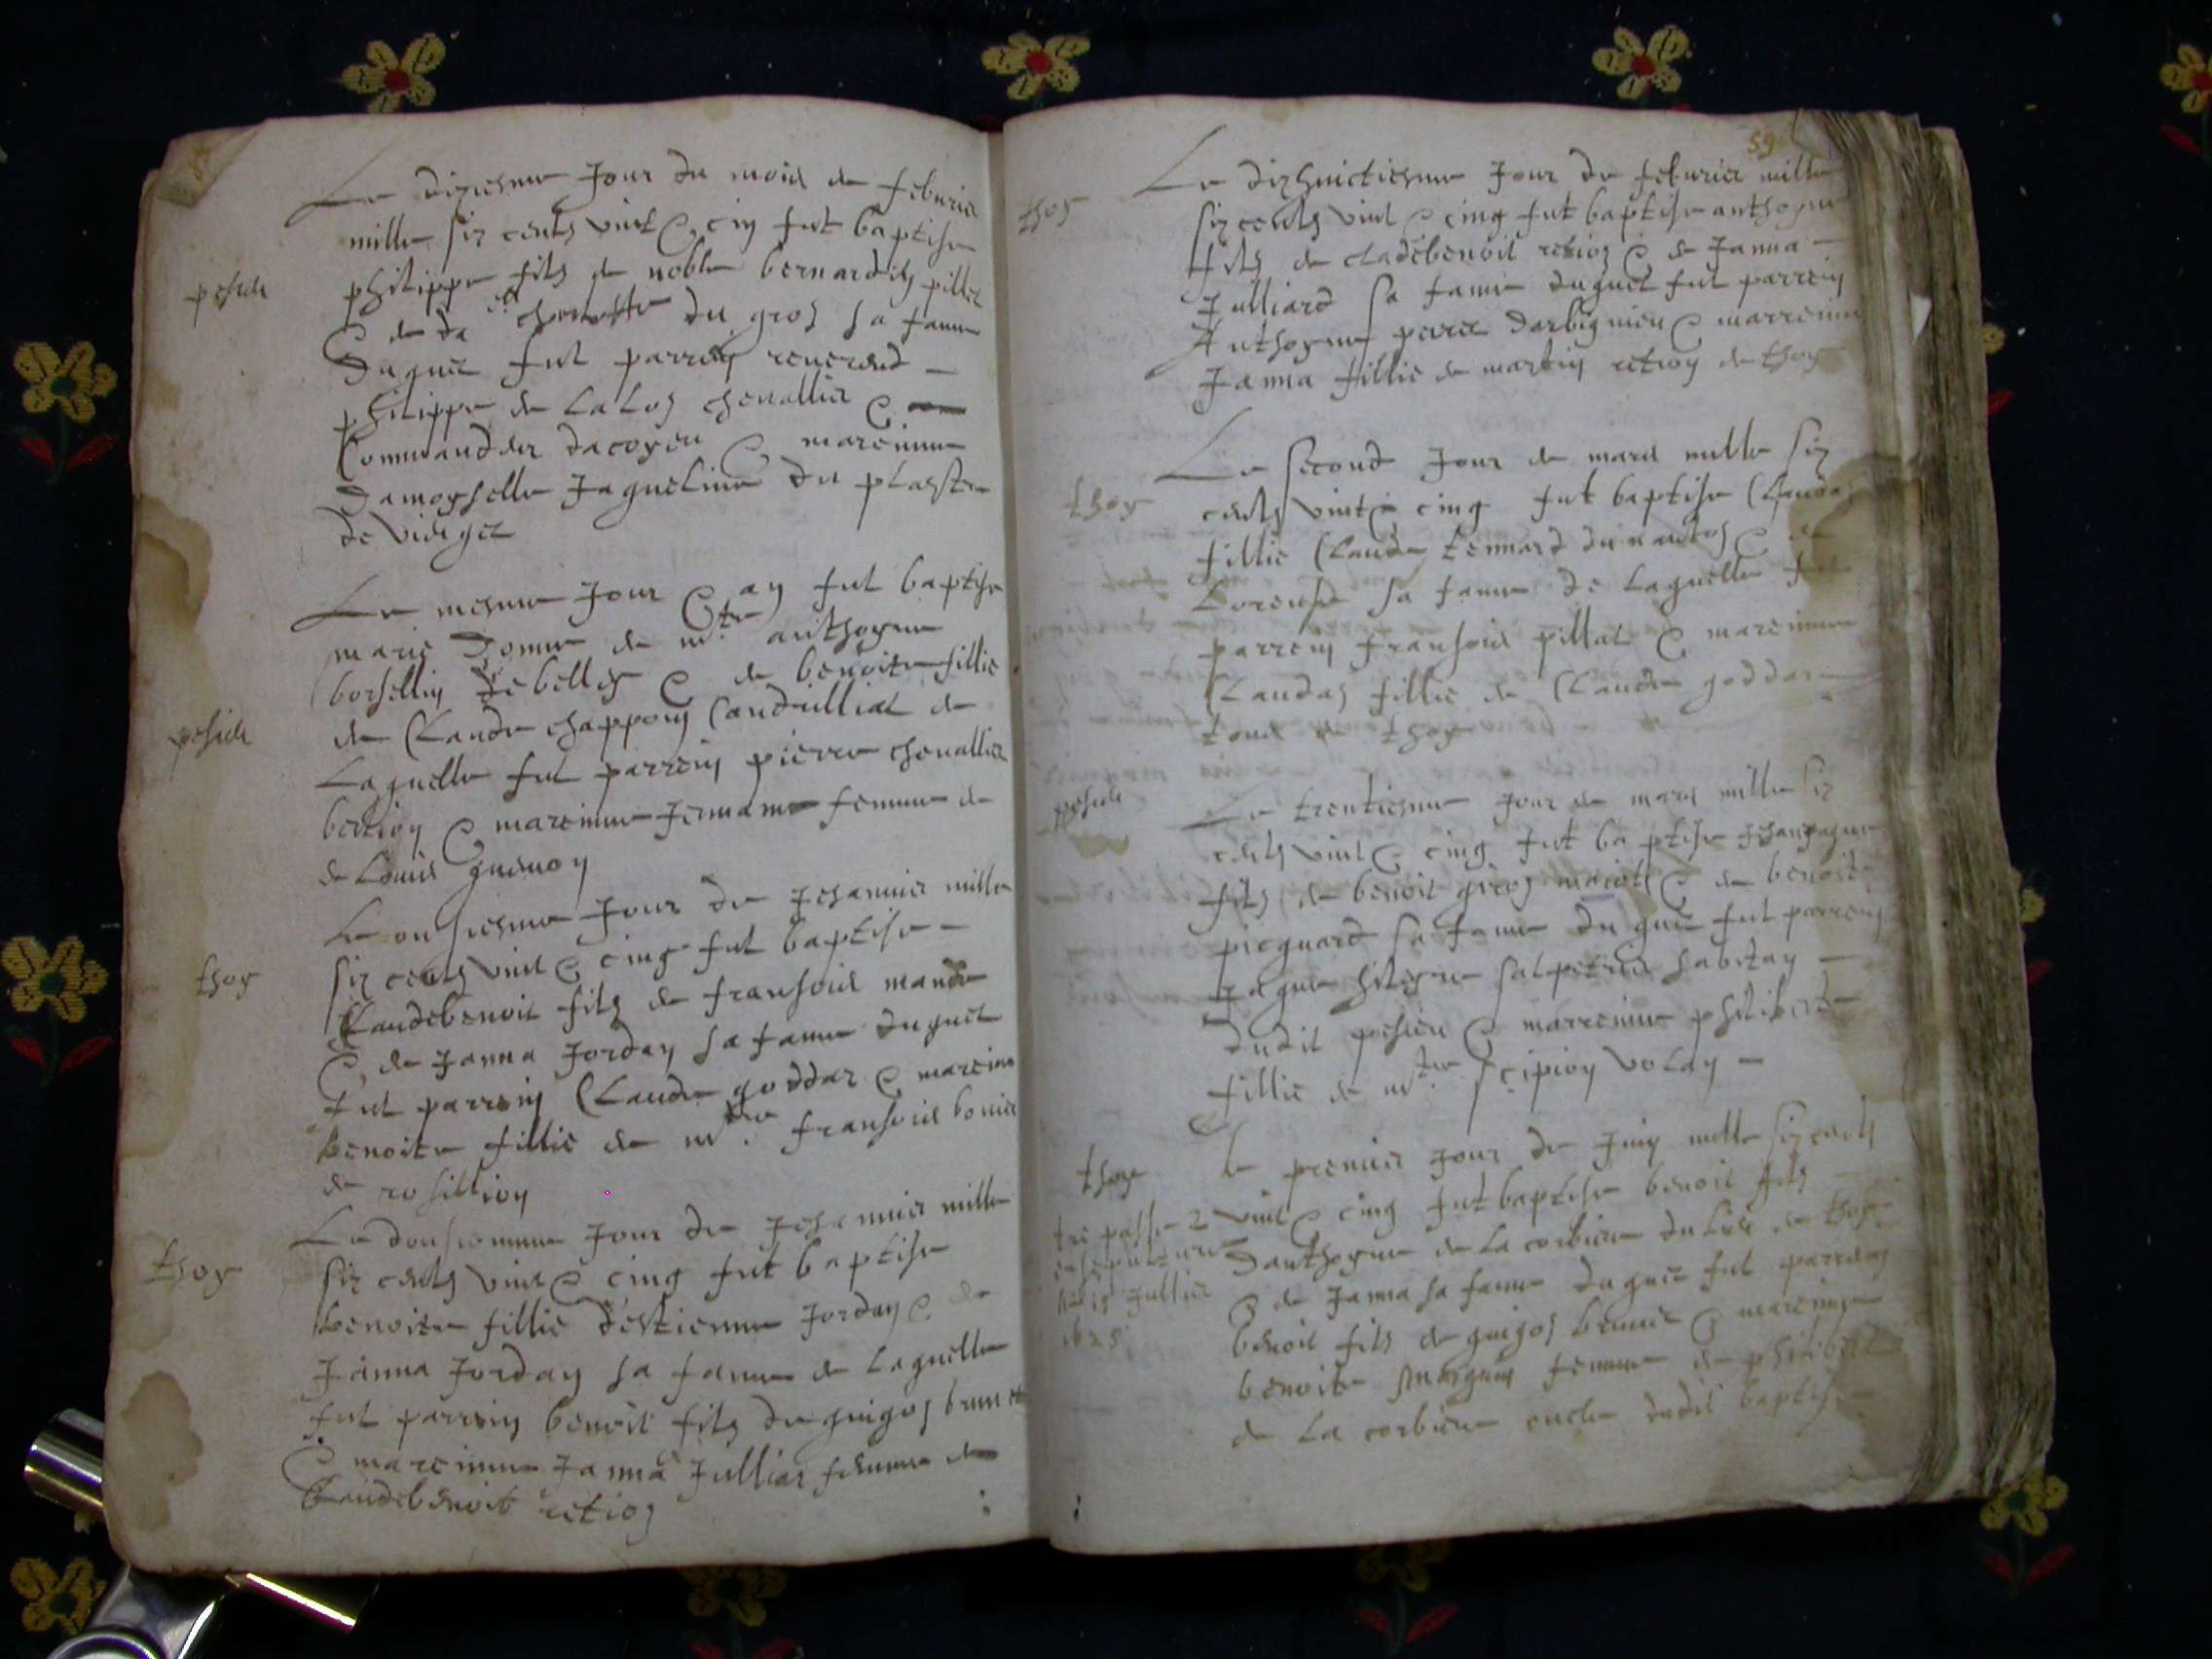 Le diziesme Jour du mois de feburier
mille siz cents vint & cin fut baptise
pesieu
philippe fils de noble bernardin pillet
& de da du gros sa fame
duquel fut parrein reverend
philippe de La Loy chevallier &
Commander dacoyeu & mareinne
damoyselle Jaqueline du plastre
de viriget
Le mesme Jour & an fut baptise
marie donne de mtre anthoyne
borsellin de belley & de benoite fillie
pesieu
de Claude chappoin Candilliat de
Laquelle fut parrein pierre chevallier
bertion & mareinne Jermame femme de
de Louis guenon
Le onsiesme Jour de Jehanvier mille
siz cents vint & cing fut baptise
thoy
Claudebenoit fils de fransois mande
& de Janna Jordan sa fame duquel
fut parrein Claude goddar & mareinne
benoite fillie de mtre fransois bonier
de rosillion
Le dousiemme Jour de Jehanvier mille
thoy
siz cents vint & cing fut baptise
benoite fillie d'estienne Jordan & de
Janna Jordan sa fame de Laquelle
fut parrein benoit fils de guigoz brunet
& mareinne Janna Julliar femme de
Claudebenoit retioz
59
Le dizhuictiesme Jour de feburier mille
thoy
siz cents vint & cing fut baptise anthoyne
fils de cladebenoit retioz & de Janna
Julliard sa fame duquel fut parrein
Anthoyne perret darbignieu & marreinne
Janna fillie de martin retion de thoy
Le second Jour de mars mille siz
thoy
cents vint & cing fut baptise Clauda
fillie Claude tennard du nantoz & de
Lorense sa fame de Laquelle fut
parrein fransois pillat & mareinne
Claudaz fillie de Claude goddar
tous de thoy
pesieu
Le trentiesme Jour de mars mille siz
cents vint & cing fut baptise
fils de benoit groz & de benoite
picquard sa fame duquel fut parrein
Jaque salpetrier habitan
dudit pesieu & marreinne philiberte
fillie de mtre scipion volan
thoy
le premier Jour de Juin mille siz cents
vint & cing fut baptise benoit fils
trepasse &
danthoyne de La corbiere du Lieu de thoy
ensepulture
Jullier
& de Janna sa fame duquel fut parrein
1625
benoit fils de guigoz brunet & mareinne
benoite femme de philibert
de La corbiere oncle dudit baptise